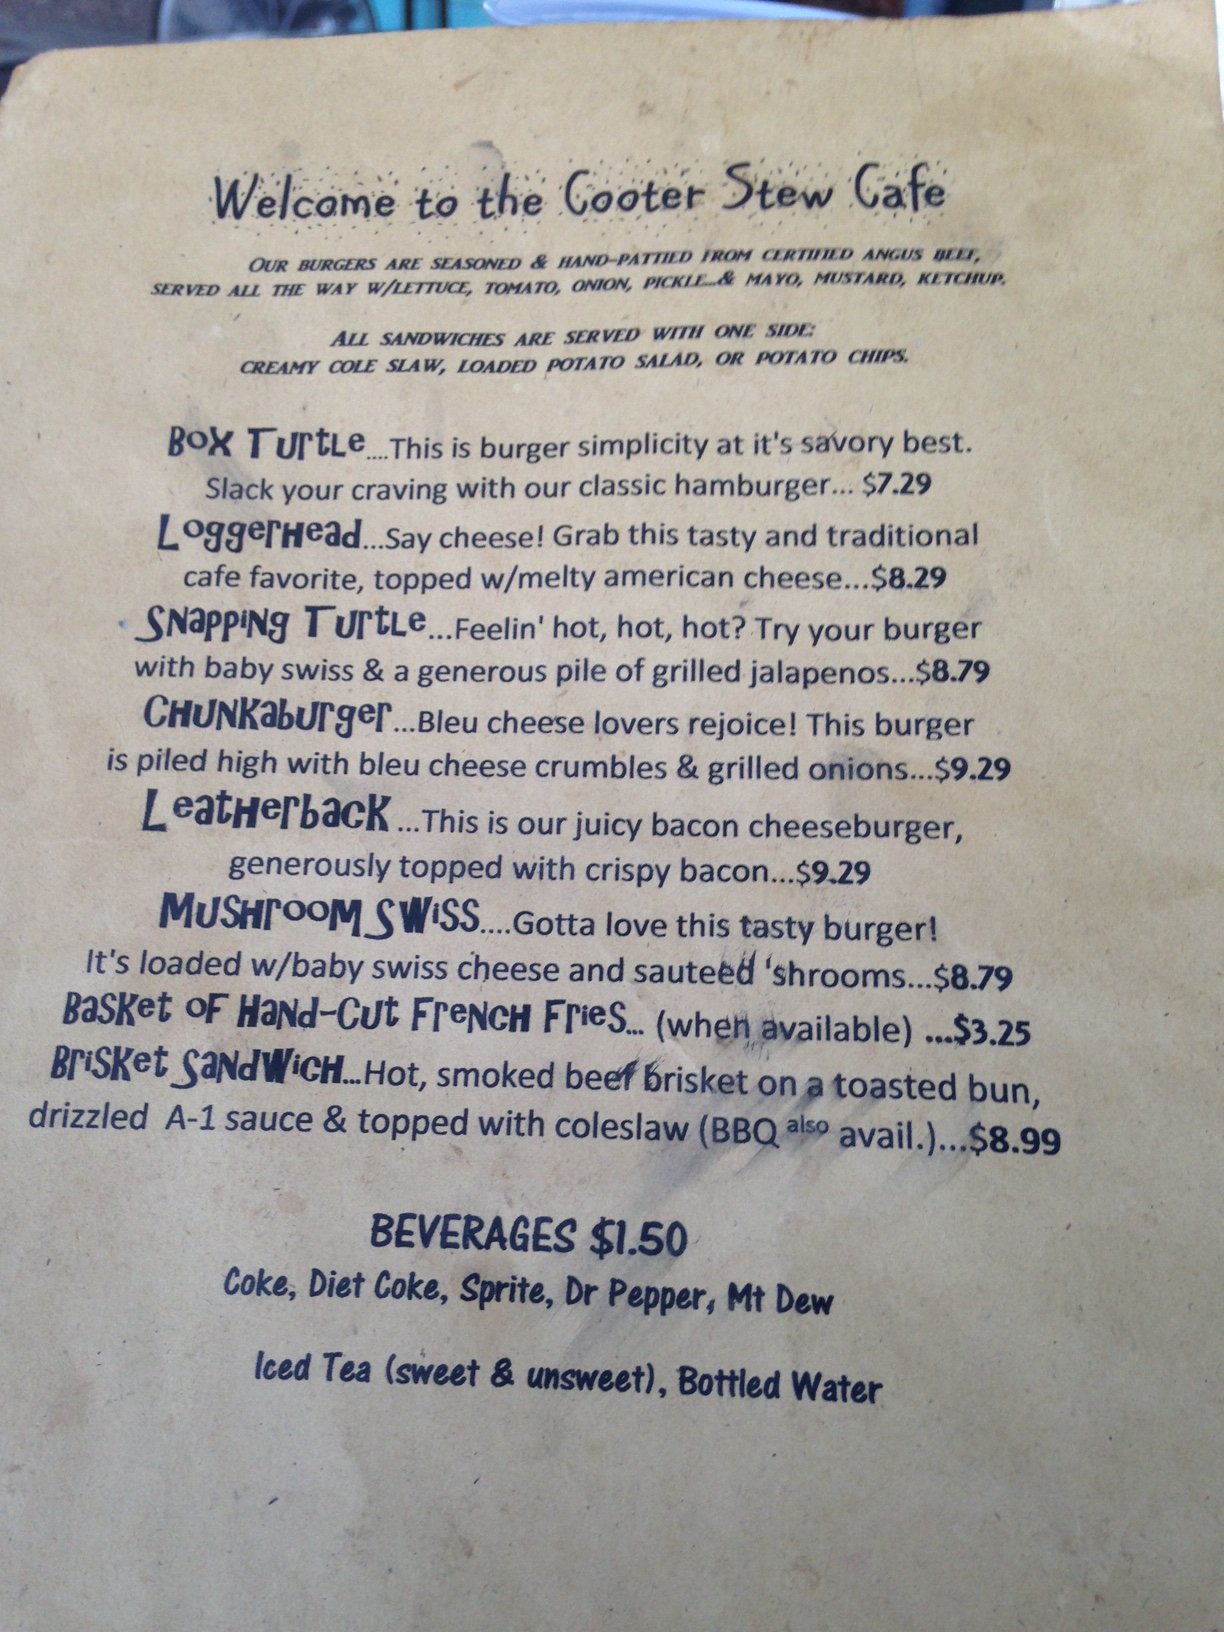 Welcome to the Cooter Stew Cafe
OUR BURGERS ARE SEASONED & HAND-PATTIED FROM CERTIFIED ANGUS BEEF,
SERVED ALL THE WAY W/LETTUCE, TOMATO, ONION, PICKLE...& MAYO, MUSTARD, KETCHUP.
ALL SANDWICHES ARE SERVED WITH ONE SIDE:
CREAMY COLE SLAW, LOADED POTATO SALAD, OR POTATO CHIPS.
Box Turtle....This is burger simplicity at it's savory best.
Slack your craving with our classic hamburger... $7.29
Loggerhead...Say cheese! Grab this tasty and traditional
cafe favorite, topped w/melty american cheese...$8.29
Snapping Turtle...Feelin' hot, hot, hot? Try your burger
with baby swiss & a generous pile of grilled jalapenos...$8.79
Chunkaburger...Bleu cheese lovers rejoice! This burger
is piled high with bleu cheese crumbles & grilled onions...$9.29
Leatherback ...This is our juicy bacon cheeseburger,
generously topped with crispy bacon...$9.29
Mushroom Swiss....Gotta love this tasty burger!
It's loaded w/baby swiss cheese and sauteed 'shrooms...$8.79
Basket of Hand-Cut French Fries... (when available) ...$3.25
Brisket Sandwich...Hot, smoked beef brisket on a toasted bun,
drizzled A-1 sauce & topped with coleslaw (BBQ also avail.)...$8.99
BEVERAGES $1.50
Coke, Diet Coke, Sprite, Dr Pepper, Mt Dew
Iced Tea (sweet & unsweet), Bottled Water